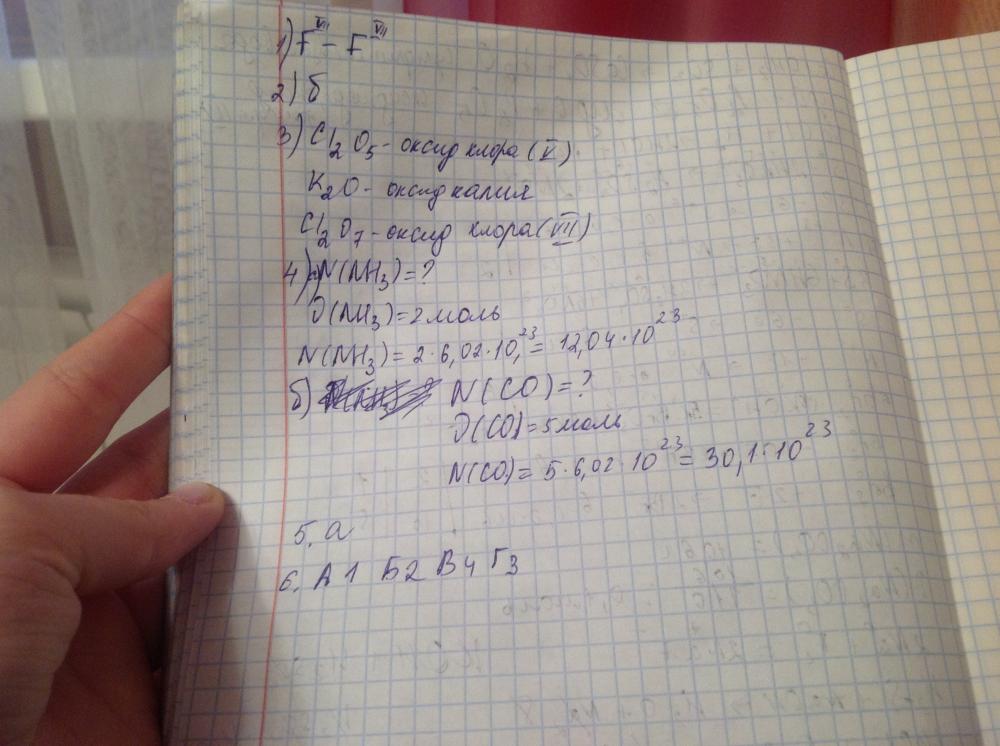 1) F^VII – F^VII
2) б
3) Cl₂O₅ - оксид хлора (V)
K₂O - оксид калия
Cl₂O₇ - оксид хлора (VII)
4) а) N(NH₃) = ?
ϑ(NH₃) = 2 моль
N(NH₃) = 2·6,02·10²³ = 12,04·10²³
б) N(CO) = ?
ϑ(CO) = 5 моль
N(CO) = 5·6,02·10²³ = 30,1·10²³
5. а
6. А1 Б2 В4 Г3